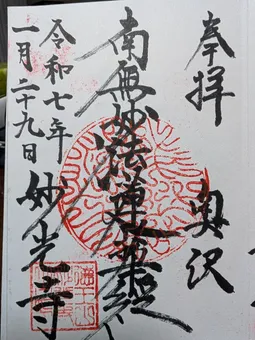 奉拝
奥沢
南無妙法蓮華経
令和七年
一月二十九日
妙光寺